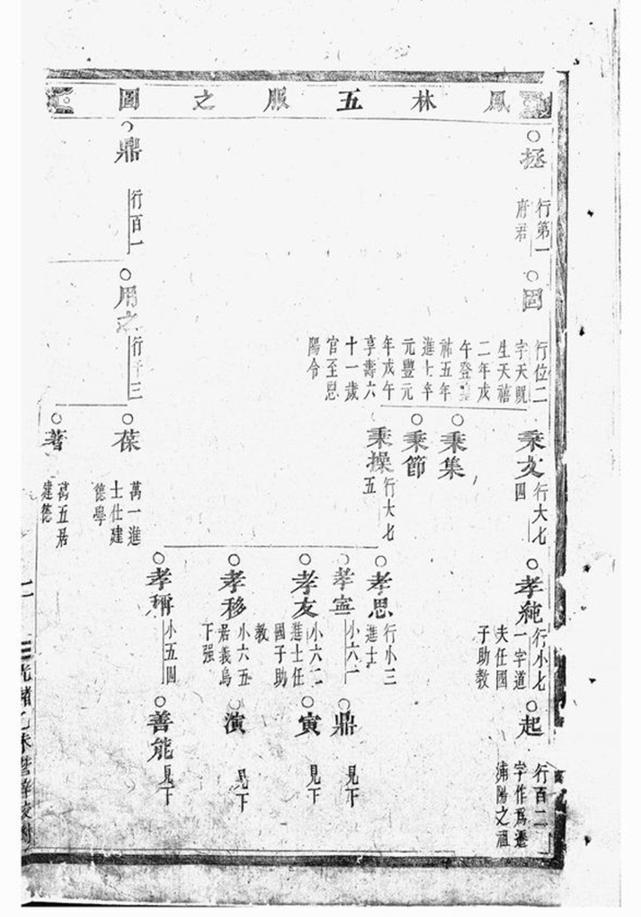 鳳林五服之圖
拯
行第一
府君
固
行位二
字天貺
生天禧
二年戊
午登皇
祐五年
進士卒
元豐元
年戊午
享壽六
十一歲
官至恩
陽令
秉文
行大七
四
秉集
秉節
秉操
行大七
五
孝純
行小七
一字道
夫任國
子助教
孝思
行小三
進士
孝寍
小六一
孝友
小六二
進士任
國子助
教
孝移
小六五
居義烏
下强
孝稱
小五四
起
行百二
字作爲遷
浦陽之祖
鼎
見下
寅
見下
演
見下
善能
見下
鼎
行百一
用之
行千三
葆
萬一進
士仕建
德學
著
萬五居
建德
光緒乙未